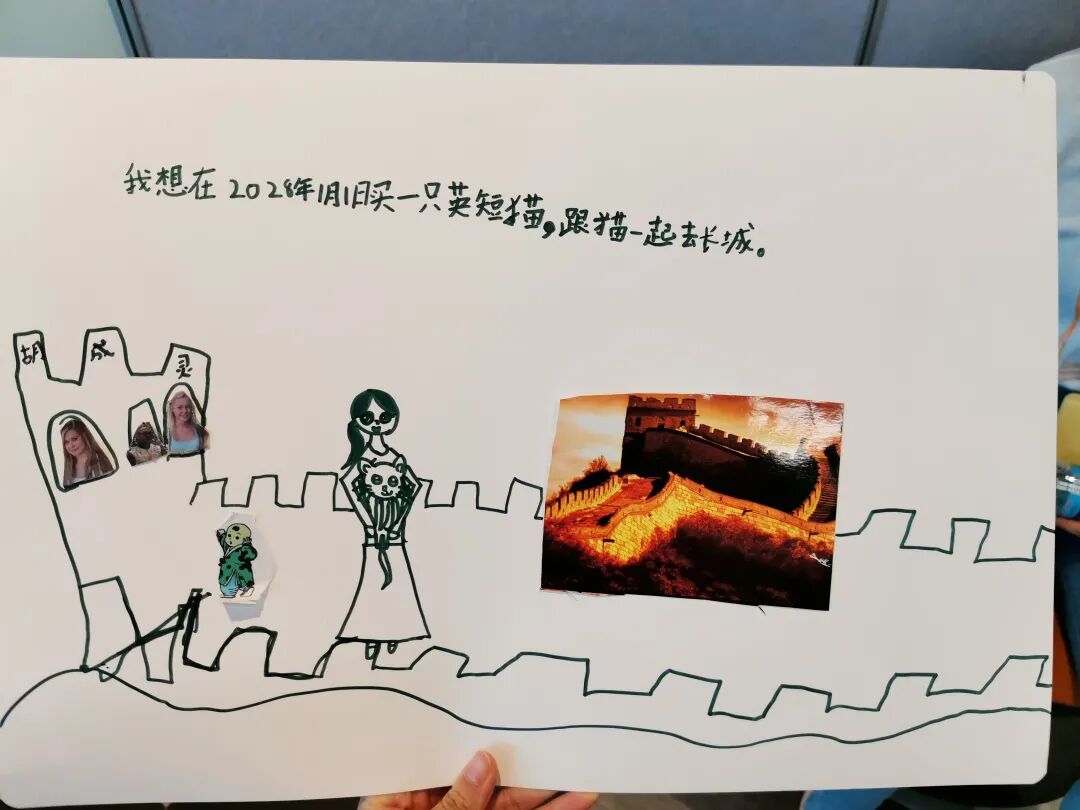 我想在2028年1月1日买一只英短猫,跟猫一起去长城。
胡 成 灵